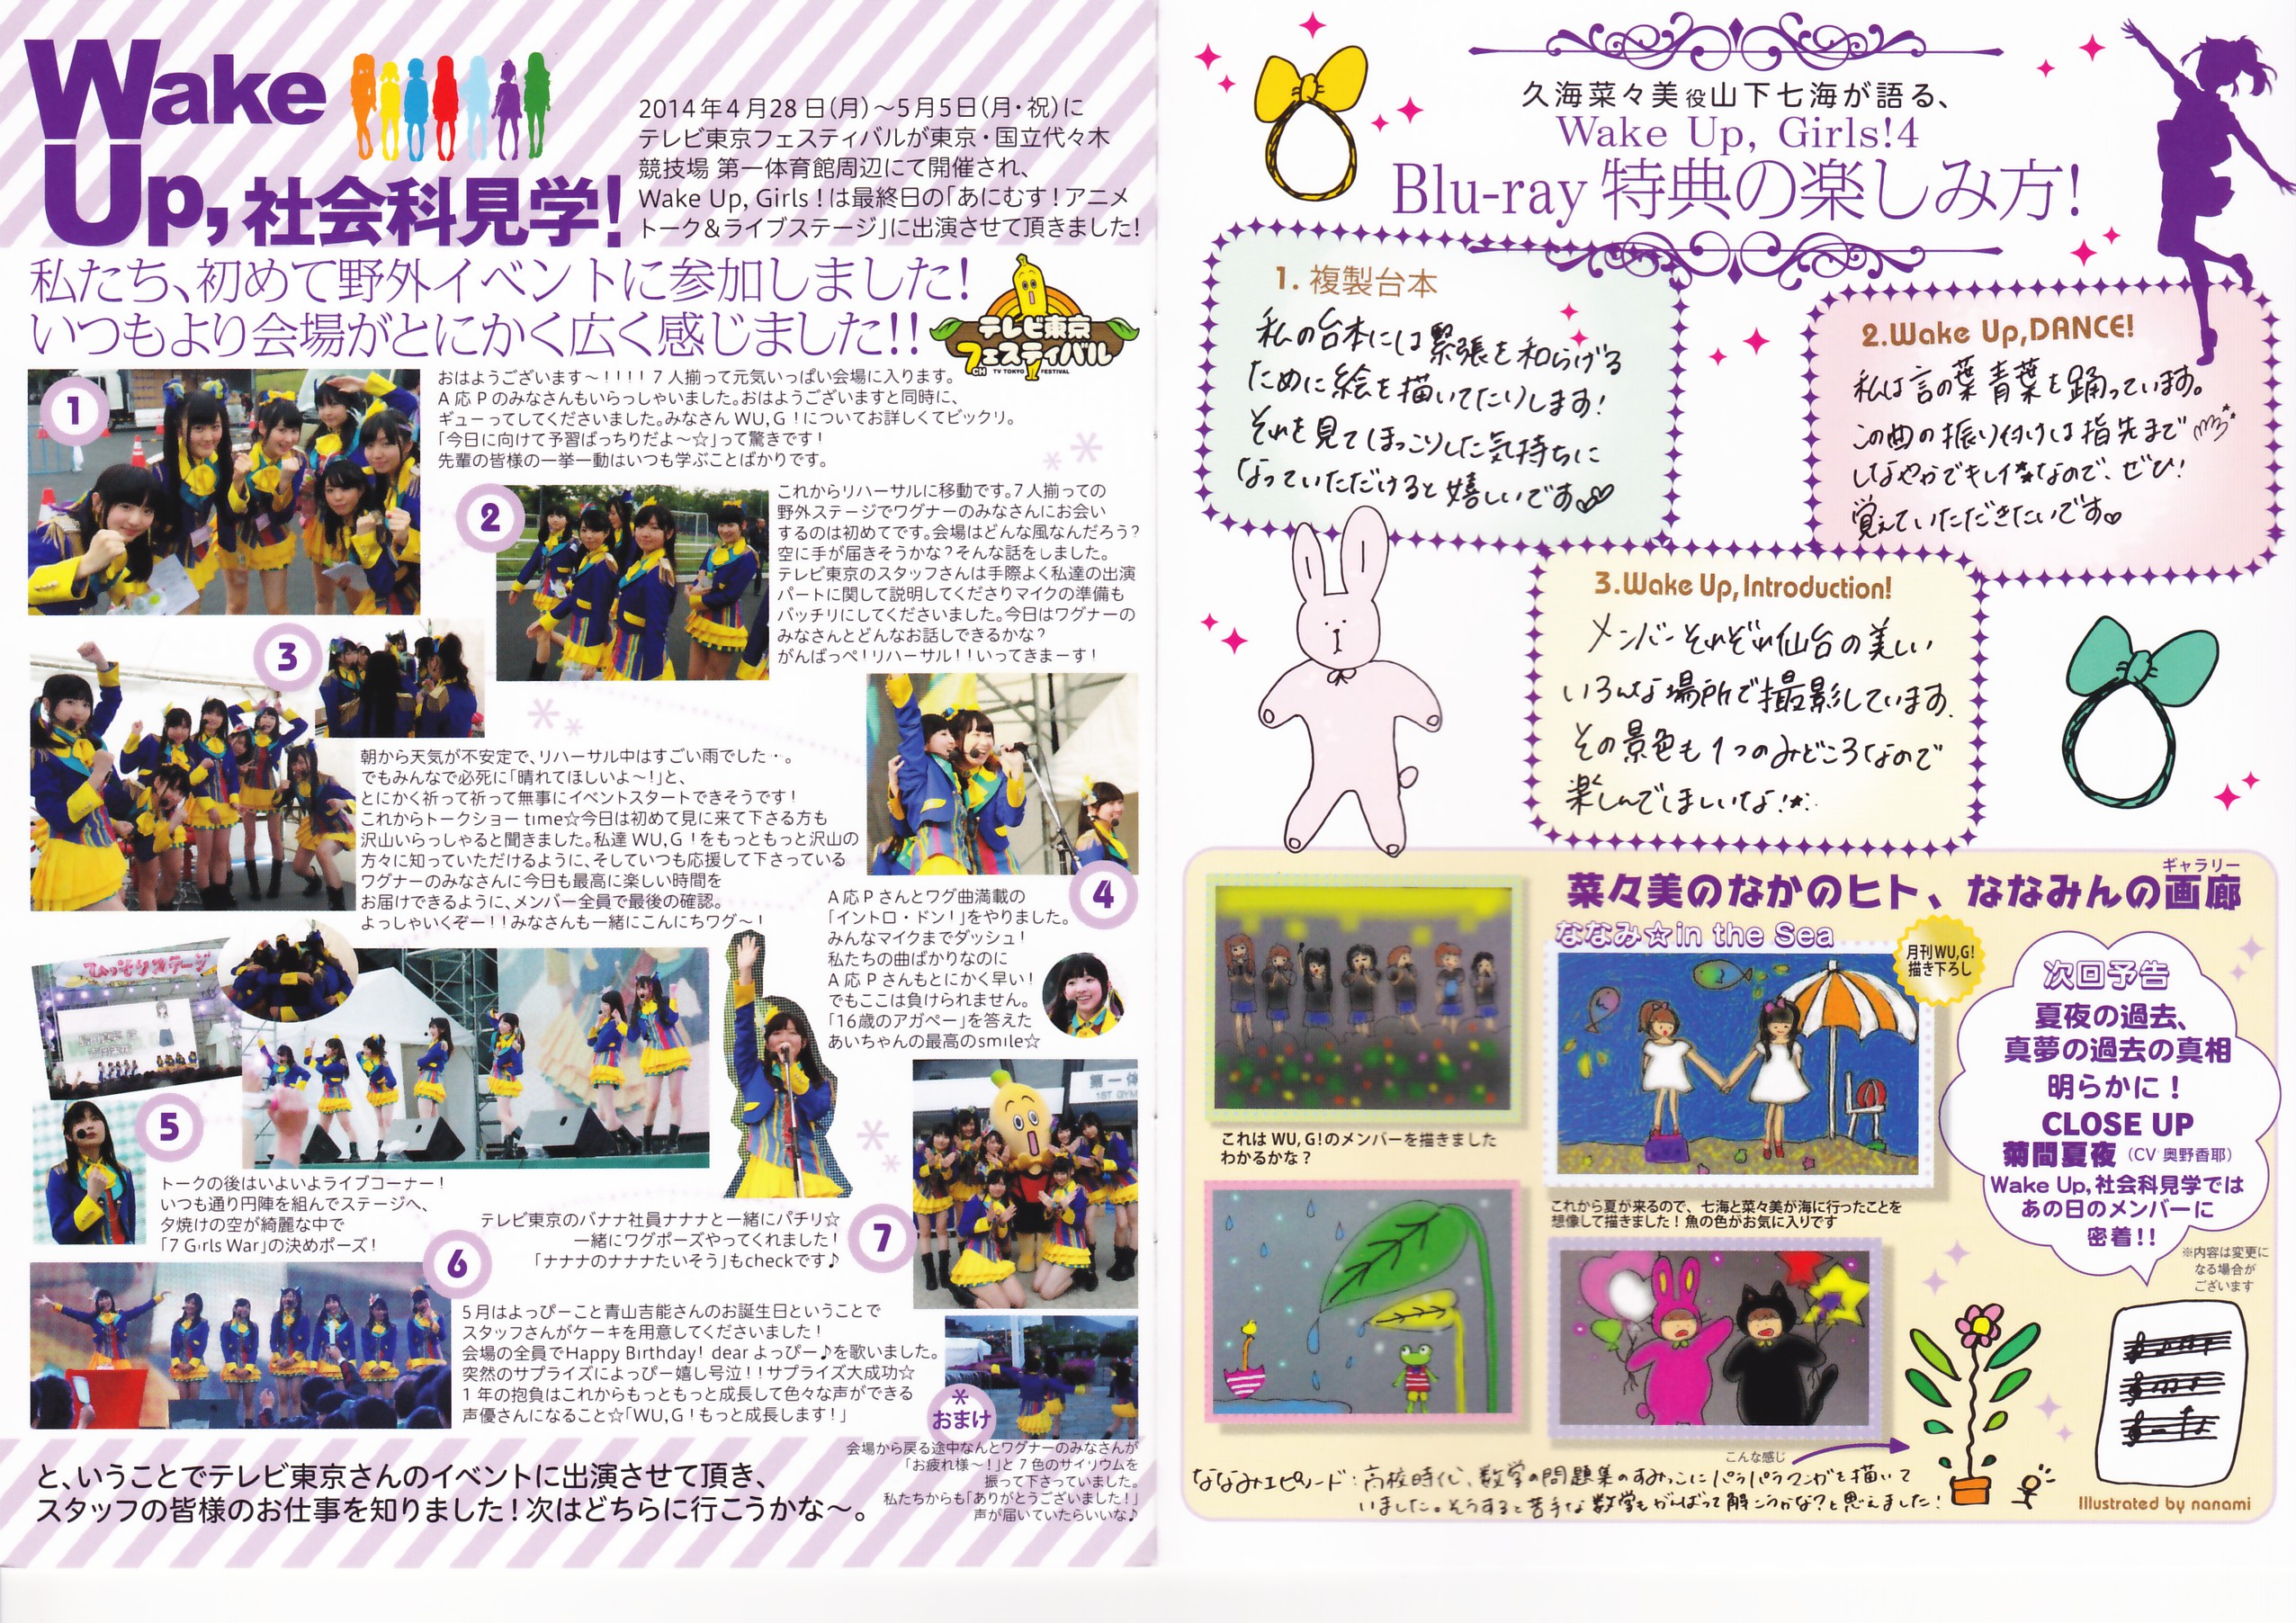 Wake
Up, 社会科見学!
2014年4月28日(月)~5月5日(月・祝)に
テレビ東京フェスティバルが東京・国立代々木
競技場 第一体育館周辺にて開催され、
Wake Up, Girls!は最終日の「あにむす!アニメ
トーク&ライブステージ」に出演させて頂きました!
私たち、初めて野外イベントに参加しました!
いつもより会場がとにかく広く感じました!!
テレビ東京
フェスティバル
7CH TV TOKYO FESTIVAL
1
おはようございます~!!!!7人揃って元気いっぱい会場に入ります。
A応Pのみなさんもいらっしゃいました。おはようございますと同時に、
ギューってしてくださいました。みなさんWU,G!についてお詳しくてビックリ。
「今日に向けて予習ばっちりだよ~☆」って驚きです!
先輩の皆様の一挙一動はいつも学ぶことばかりです。
2
これからリハーサルに移動です。7人揃っての
野外ステージでワグナーのみなさんにお会い
するのは初めてです。会場はどんな風なんだろう?
空に手が届きそうかな?そんな話をしました。
テレビ東京のスタッフさんは手際よく私達の出演
パートに関して説明してくださりマイクの準備も
バッチリにしてくださいました。今日はワグナーの
みなさんとどんなお話しできるかな?
がんばっぺ!リハーサル!!いってきまーす!
3
朝から天気が不安定で、リハーサル中はすごい雨でした…。
でもみんなで必死に「晴れてほしいよ~!」と、
とにかく祈って祈って無事にイベントスタートできそうです!
これからトークショー time☆今日は初めて見に来て下さる方も
沢山いらっしゃると聞きました。私達 WU,G!をもっともっと沢山の
方々に知っていただけるように、そしていつも応援して下さっている
ワグナーのみなさんに今日も最高に楽しい時間を
お届けできるように、メンバー全員で最後の確認。
よっしゃいくぞー!!みなさんも一緒にこんにちワグ~!
4
A応Pさんとワグ曲満載の
「イントロ・ドン!」をやりました。
みんなマイクまでダッシュ!
私たちの曲ばかりなのに
A応Pさんもとにかく早い!
でもここは負けられません。
「16歳のアガペー」を答えた
あいちゃんの最高のsmile☆
ステージ
第一体
1ST GYM
5
トークの後はいよいよライブコーナー!
いつも通り円陣を組んでステージへ、
夕焼けの空が綺麗な中で
「7 Girls War」の決めポーズ!
7
テレビ東京のバナナ社員ナナナと一緒にパチリ☆
一緒にワグポーズやってくれました!
「ナナナのナナナたいそう」もcheckです♪
6
5月はよっぴーこと青山吉能さんのお誕生日ということで
スタッフさんがケーキを用意してくださいました!
会場の全員でHappy Birthday! dear よっぴー♪を歌いました。
突然のサプライズによっぴー嬉し号泣!!サプライズ大成功☆
1年の抱負はこれからもっともっと成長して色々な声ができる
声優さんになること☆「WU,G!もっと成長します!」
おまけ
会場から戻る途中なんとワグナーのみなさんが
「お疲れ様~!」と7色のサイリウムを
振って下さっていました。
私たちからも「ありがとうございました!」
声が届いていたらいいな♪
と、いうことでテレビ東京さんのイベントに出演させて頂き、
スタッフの皆様のお仕事を知りました!次はどちらに行こうかな~。
久海菜々美役山下七海が語る、
Wake Up, Girls!4
Blu-ray 特典の楽しみ方!
1. 複製台本
私の台本には緊張を和らげる
ために絵を描いてたりします!
それを見てほっこりした気持ちに
なっていただけると嬉しいです♡
2.Wake Up,DANCE!
私は言の葉青葉を踊っています。
この曲の振り付けは指先まで
しなやかでキレイ☆なので、ぜひ!
覚えていただきたいです♡
3.Wake Up,Introduction!
メンバーそれぞれ仙台の美しい
いろんな場所で撮影しています。
その景色も1つのみどころなので
楽しんでほしいな!☆
菜々美のなかのヒト、ななみんの画廊
ギャラリー
ななみ☆in the Sea
月刊WU,G!
描き下ろし
これは WU,G!のメンバーを描きました
わかるかな?
これから夏が来るので、七海と菜々美が海に行ったことを
想像して描きました!魚の色がお気に入りです
次回予告
夏夜の過去、
真夢の過去の真相
明らかに!
CLOSE UP
菊間夏夜 (CV 奥野香耶)
Wake Up,社会科見学では
あの日のメンバーに
密着!!
※内容は変更に
なる場合が
ございます
こんな感じ
ななみエピソード:高校時代、数学の問題集のすみっこにパラパラマンガを描いて
いました。そうすると苦手な数学もがんばって解こうかな?と思えました!
Illustrated by nanami